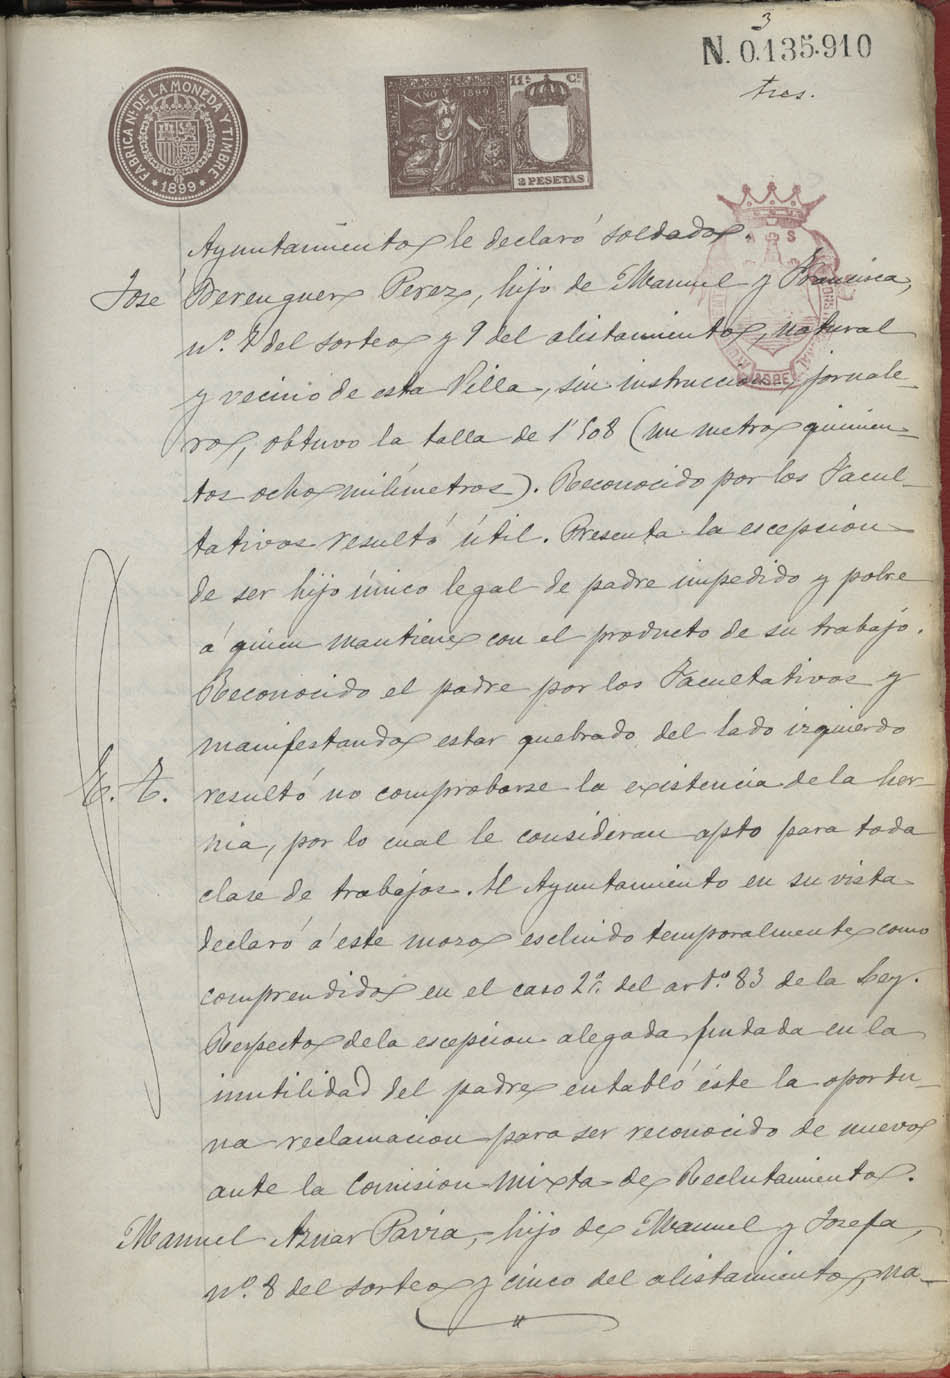 3
N. 0.135.910
tres.
FABRICA Nl. DE LA MONEDA Y TIMBRE
1899
AÑO 1899
11ª Cª
2 PESETAS
ASPE
Ayuntamiento le declaró soldado.
José Berenguer Perez, hijo de Manuel y Francisca,
nº. 7 del sorteo y 9 del alistamiento, natural
y vecino de esta Villa, sin instruccion, jornale-
ro, obtuvo la talla de 1'508 (un metro quinien-
tos ocho milímetros). Reconocido por los Facul-
tativos resultó útil. Presenta la escepcion
de ser hijo único legal de padre impedido y pobre
á quien mantiene con el producto de su trabajo.
Reconocido el padre por los Facultativos y
manifestando estar quebrado del lado izquierdo
E. T. resultó no comprobarse la existencia de la her-
nia, por lo cual le consideran apto para toda
clase de trabajos. El Ayuntamiento en su vista
declaró á este mozo escluido temporalmente como
comprendido en el caso 2º. del artº. 83 de la Ley.
Respecto de la escepcion alegada fundada en la
inutilidad del padre entabló éste la oportu-
na reclamacion para ser reconocido de nuevo
ante la Comision Mixta de Reclutamiento.
Manuel Aznar Pavia, hijo de Manuel y Josefa,
nº. 8 del sorteo y cinco del alistamiento, na-